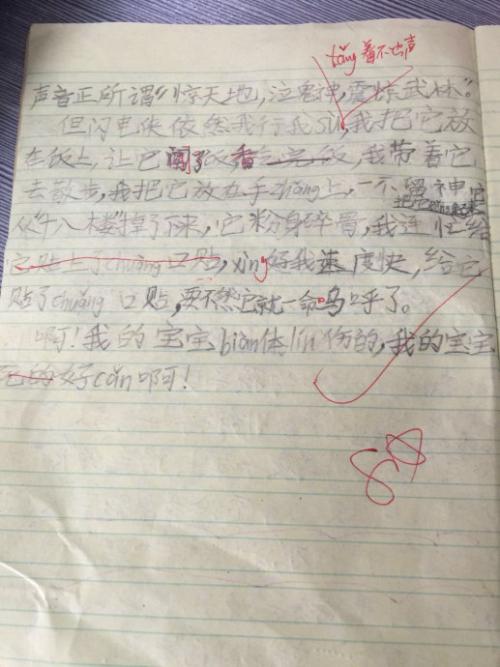 tǎng着不出声
声音正所谓“惊天地,泣鬼神,震惊武林”。
但闪电侠依然我行我sù,我把它放
在饭上,让它闻了饭香,我带着它
去散步,我把它放在手zhǎng上,一不留神,它
从“十八楼”掉了下来,它粉身碎骨,我连忙给
把它
它贴上了chuāng口贴,xìng好我速度快,给它
贴了chuǎng口贴,要不然它就一命呜呼了。
啊!我的宝宝biàn体lín伤的,我的宝宝
好cǎn啊!